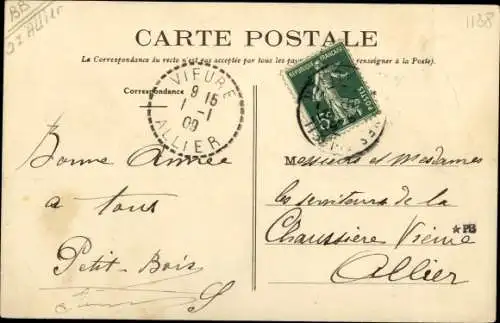 BB
02 Allier
1138
CARTE POSTALE
La Correspondance du recto n'est pas acceptée par tous les pays renseigner à la Poste).
Correspondance
VIEURE
9 15
1 -1
09
ALLIER
REPUBLIQUE FRANÇAISE
POSTES
5c
Bonne Année
à tous
Petit-Bois
S
Messieurs et Mesdames
les serviteurs de la
Chaussière Vieure
Allier
*PB